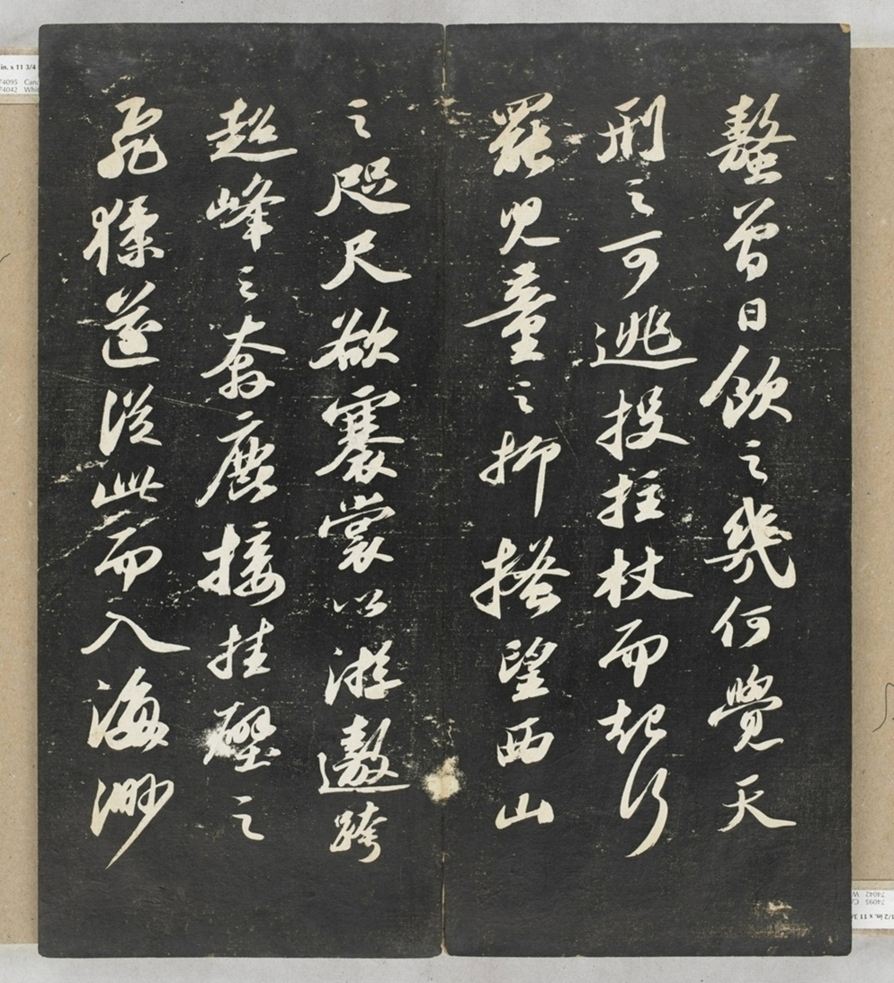 螯曾日飲之幾何覺天
刑之可逃投拄杖而起行
罷兒童之抑搔望西山
之咫尺欲褰裳以游遨跨
超峰之奔鹿接挂壁之
飛猱遂從此而入海渺
in. x 11 3/4
74095
74042